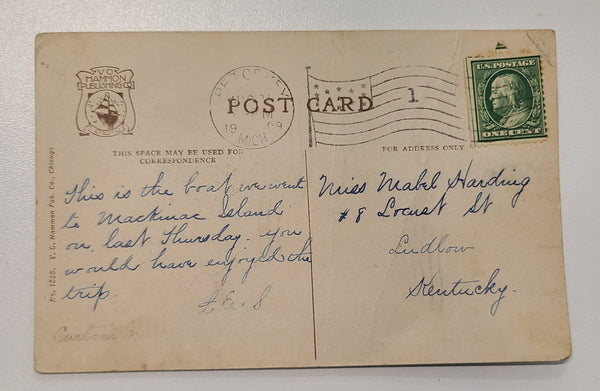 V.O.
HAMMON
PUBLISHING CO.
PETOSKEY
19 09
MICH.
POST CARD
1
U.S. POSTAGE
ONE CENT
THIS SPACE MAY BE USED FOR
CORRESPONDENCE
FOR ADDRESS ONLY
This is the boat we went
to Mackinac Island
on, last Thursday. you
would have enjoyed the
trip.
Miss Mabel Harding
#8 Locust St
Ludlow
Kentucky.
No. 1525. V. O. Hammon Pub. Co., Chicago